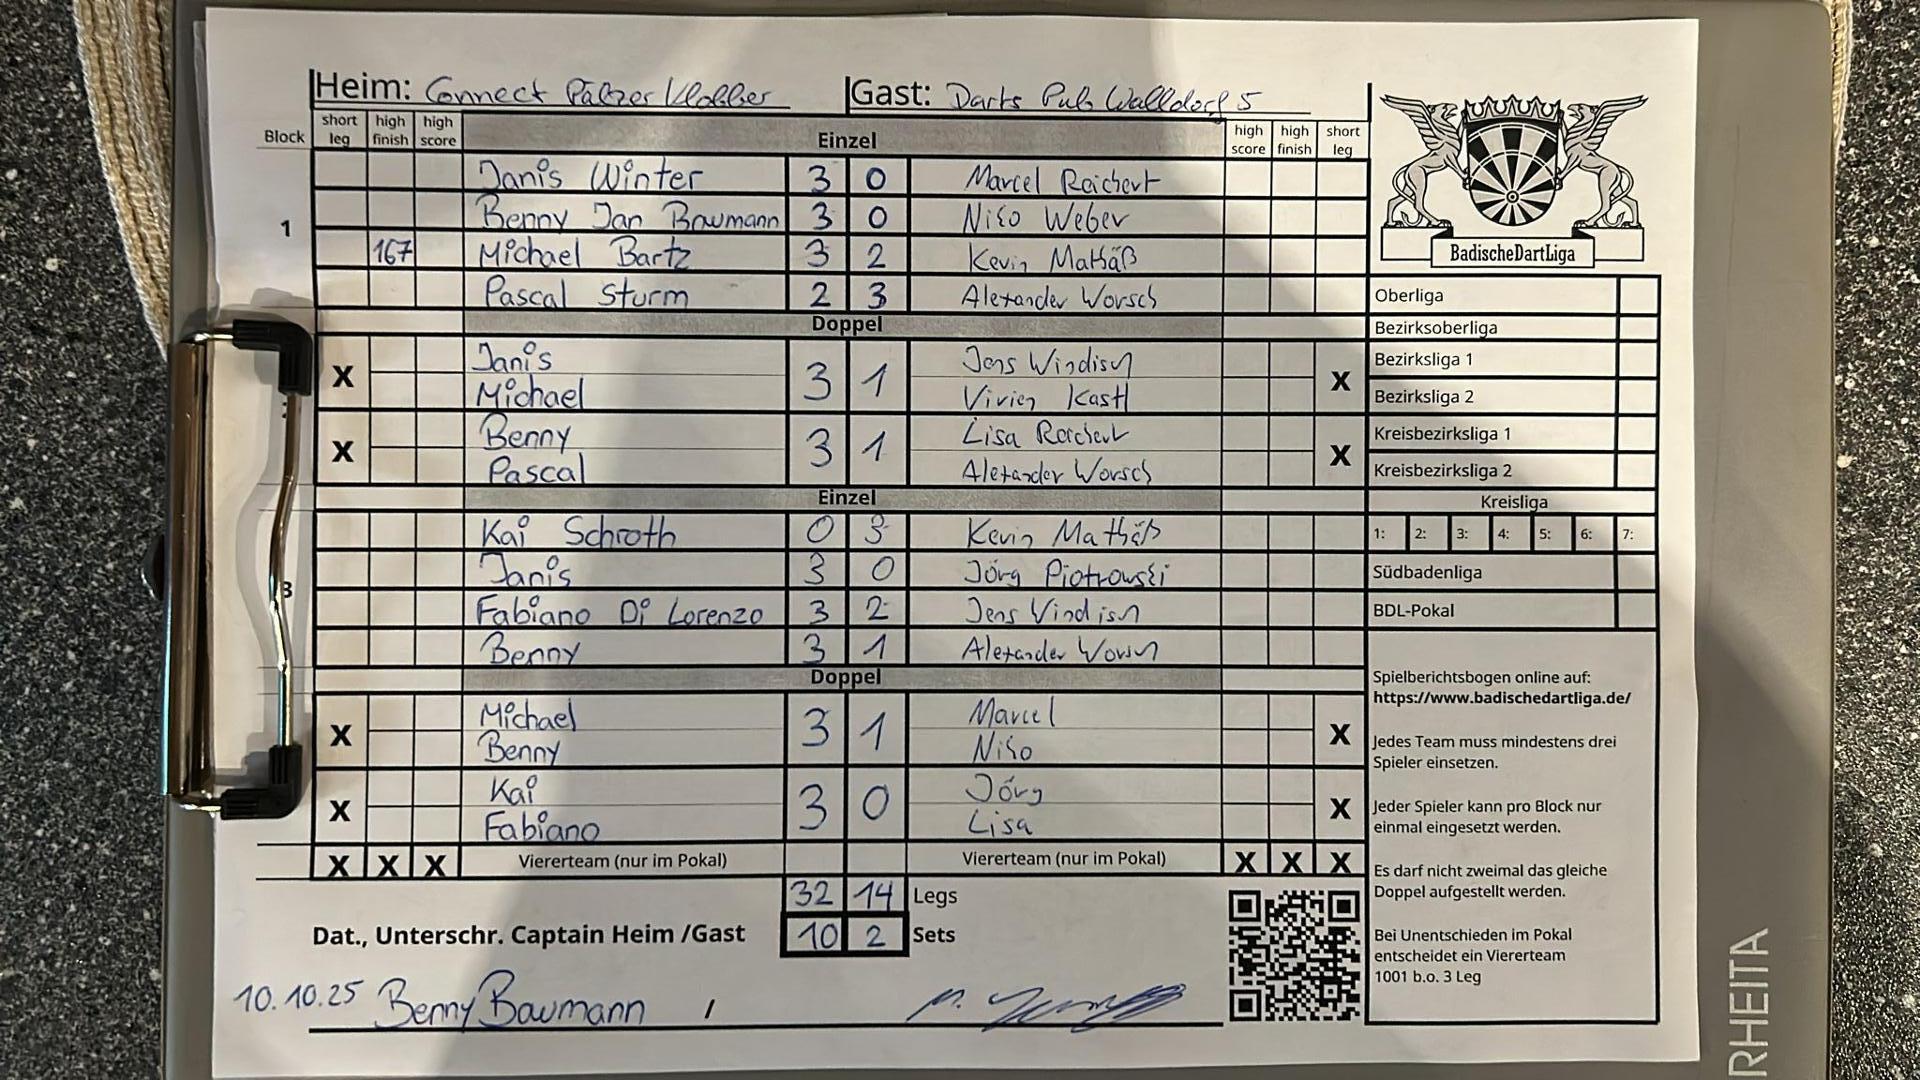 Heim: Connect Pälzer Klobber Gast: Darts Pub Walldorf 5
Block short leg high finish high score Einzel high score high finish short leg
1
Janis Winter 3 0 Marcel Reichert
Benny Jan Baumann 3 0 Niko Weber
167 Michael Bartz 3 2 Kevin Mathäß
Pascal Sturm 2 3 Alexander Worsch
Doppel
X Janis Michael 3 1 Jens Windisch Vivien Kastl X
X Benny Pascal 3 1 Lisa Reichert Alexander Worsch X
Einzel
3
Kai Schroth 0 3 Kevin Mathäß
Janis 3 0 Jörg Piotrowski
Fabiano Di Lorenzo 3 2 Jens Windisch
Benny 3 1 Alexander Worsch
Doppel
X Michael Benny 3 1 Marcel Niko X
X Kai Fabiano 3 0 Jörg Lisa X
X X X Viererteam (nur im Pokal) Viererteam (nur im Pokal) X X X
32 14 Legs
Dat., Unterschr. Captain Heim /Gast 10 2 Sets
10.10.25 Benny Baumann /
BadischeDartLiga
Oberliga
Bezirksoberliga
Bezirksliga 1
Bezirksliga 2
Kreisbezirksliga 1
Kreisbezirksliga 2
Kreisliga
1: 2: 3: 4: 5: 6: 7:
Südbadenliga
BDL-Pokal
Spielberichtsbogen online auf:
https://www.badischedartliga.de/
Jedes Team muss mindestens drei
Spieler einsetzen.
Jeder Spieler kann pro Block nur
einmal eingesetzt werden.
Es darf nicht zweimal das gleiche
Doppel aufgestellt werden.
Bei Unentschieden im Pokal
entscheidet ein Viererteam
1001 b.o. 3 Leg
RHEITA